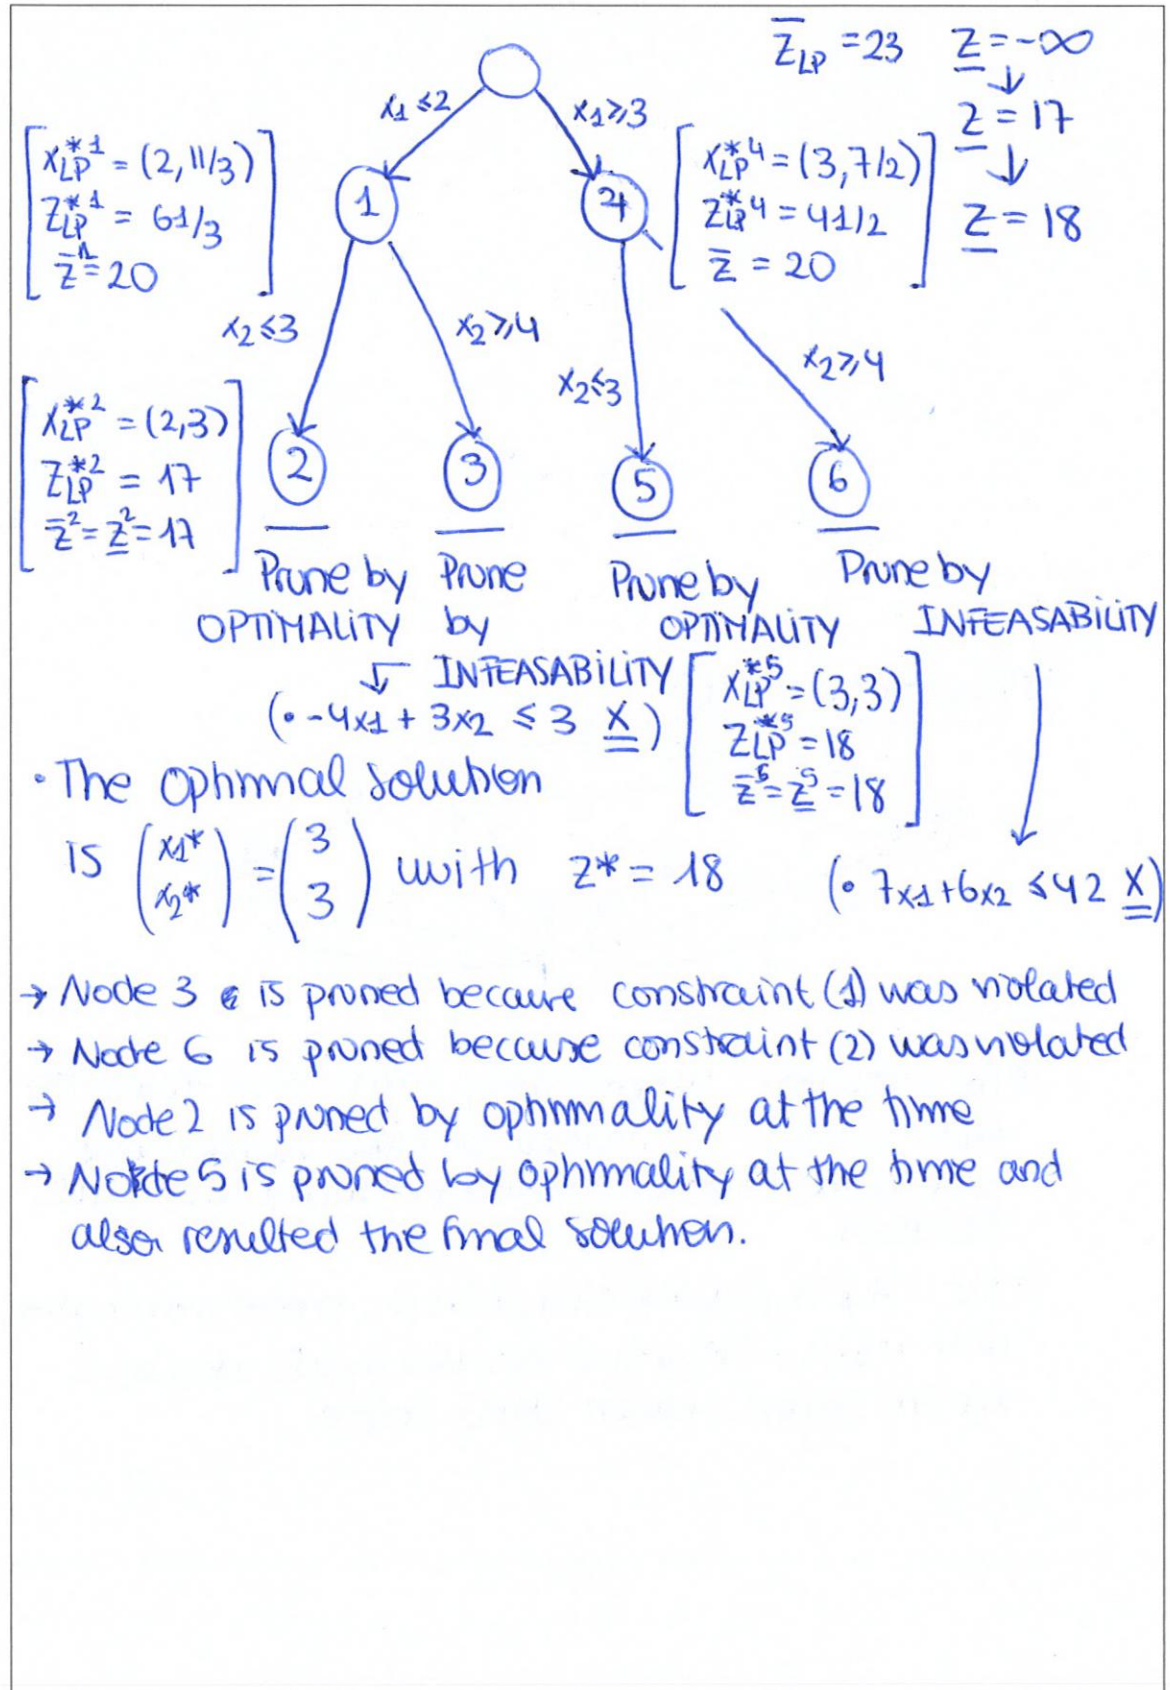 z̅_LP = 23   z̲ = -∞
↓
x1 ≤ 2   x1 ≥ 3   z̲ = 17
↓
z̲ = 18
[ x_LP^*1 = (2, 11/3)
z_LP^*1 = 61/3
z̅^1 = 20 ]
1
4
[ x_LP^*4 = (3, 7/2)
z_LP^*4 = 41/2
z̅ = 20 ]
x2 ≤ 3   x2 ≥ 4   x2 ≤ 3   x2 ≥ 4
[ x_LP^*2 = (2,3)
z_LP^*2 = 17
z̅^2 = z̲^2 = 17 ]
2   3   5   6
Prune by OPTIMALITY
Prune by INFEASABILITY
Prune by OPTIMALITY
Prune by INFEASABILITY
(• -4x1 + 3x2 ≤ 3 X)
[ x_LP^*5 = (3,3)
z_LP^*5 = 18
z̅^5 = z̲^5 = 18 ]
• The optimal solution
is (x1* x2*) = (3 3) with z* = 18
(• 7x1 + 6x2 ≤ 42 X)
→ Node 3 is pruned because constraint (1) was violated
→ Node 6 is pruned because constraint (2) was violated
→ Node 2 is pruned by optimmality at the time
→ Node 5 is pruned by optimmality at the time and
also resulted the final solution.